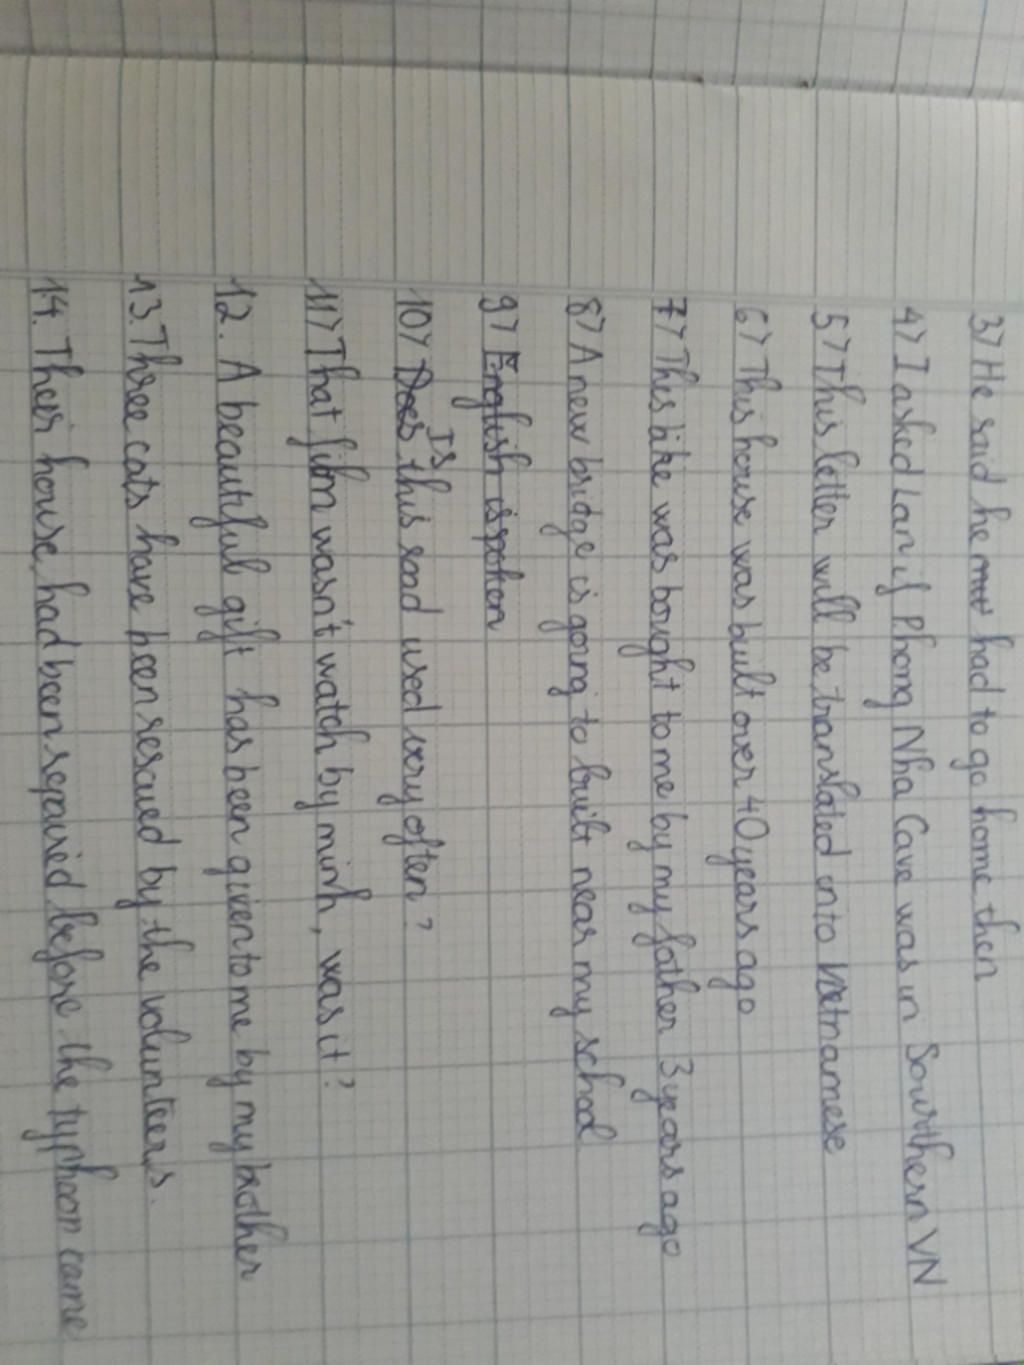 3> He said he had to go home then
4> I asked Lan if Phong Nha Cave was in Sourthern VN
5> This letter will be translated into Vietnamese
6> This house was built over 40 years ago
7> This bike was bought to me by my father 3 years ago
8> A new bridge is going to built near my school
9> English is spoken
10> Does Is this road used very often?
11> That film wasn't watch by minh, was it?
12. A beautiful gift has been given to me by my brother
13. Three cats have been rescued by the volunteers.
14. Their house, had been repaired before the typhoon came